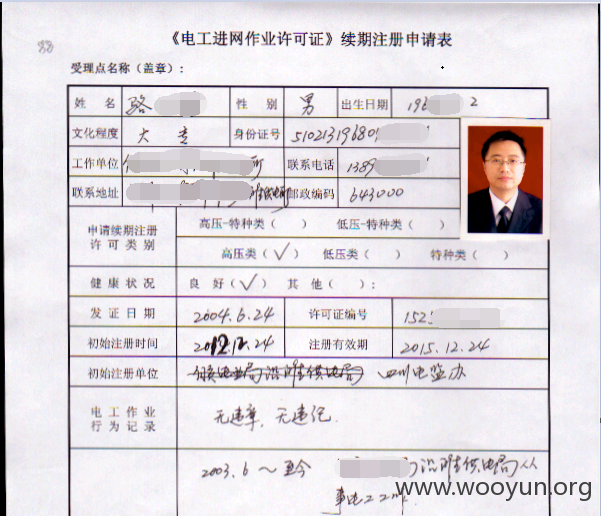 《电工进网作业许可证》续期注册申请表
受理点名称（盖章）：
姓 名 骆 性 别 男 出生日期 196 2
文化程度 大专 身份证号 51021319680
工作单位 所 联系电话 1389
联系地址 供电所 邮政编码 643000
申请续期注册
许可类别
高压-特种类（ ） 低压-特种类（ ）
高压类（✓） 低压类（ ） 特种类（ ）
健康状况 良 好（✓） 其 他（ ）：
发证日期 2004.6.24 许可证编号 152
初始注册时间 2012.12.24 注册有效期 2015.12.24
初始注册单位 供电局 四川电监办
电工作业
行为记录
无违章，无违纪.
2003.6～至今 沿滩供电局从
事电工工作
www.wooyun.org